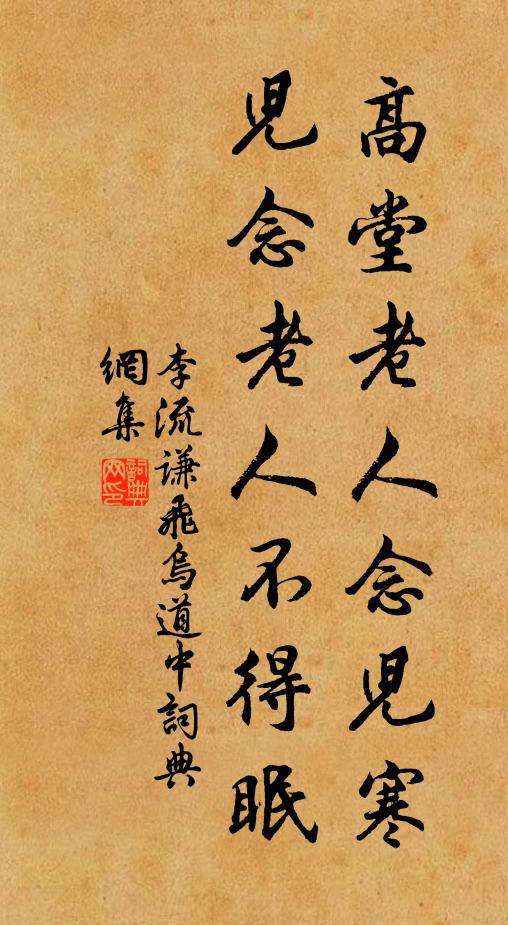 高堂老人念兒寒
兒念老人不得眠
李流謙飛烏道中詞典
網集
詞典
网印